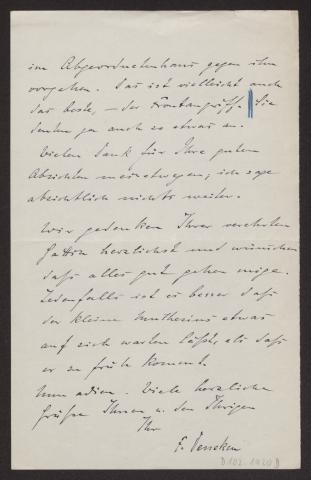 im Abgeordnetenhaus gegen ihn
vorgehen. Das ist vielleicht auch
das beste, – der Frontangriff. Sie
deuten ja auch so etwas an.
Vielen Dank für Ihre guten
Absichten meinetwegen; ich sage
absichtlich nichts weiter.
Wir gedenken Ihrer verehrten
Gattin herzlichst und wünschen
dass alles gut gehen möge.
Jedenfalls ist es besser dass
der kleine Muthesius etwas
auf sich warten lässt, als dass
er zu früh kommt.
Nun adieu. Viele herzliche
Grüsse Ihnen u. den Ihrigen
Ihr
F. Deneken
D 102 - 1920